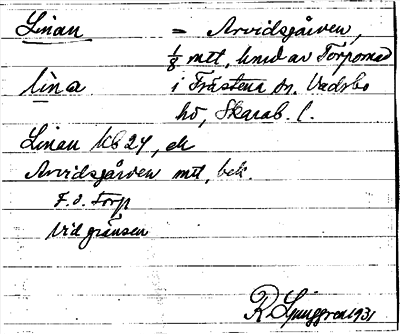 Linan = Arvidsgården,
1/8 mtl, hmd av Torpomad
lìna i Trästena sn. Vadsbo
hd, Skarab. l.
Linan Kb 24, ek
Arvidsgården mtl, bek.
F. d. Torp
Vid gränsen
R Ljunggren 1931